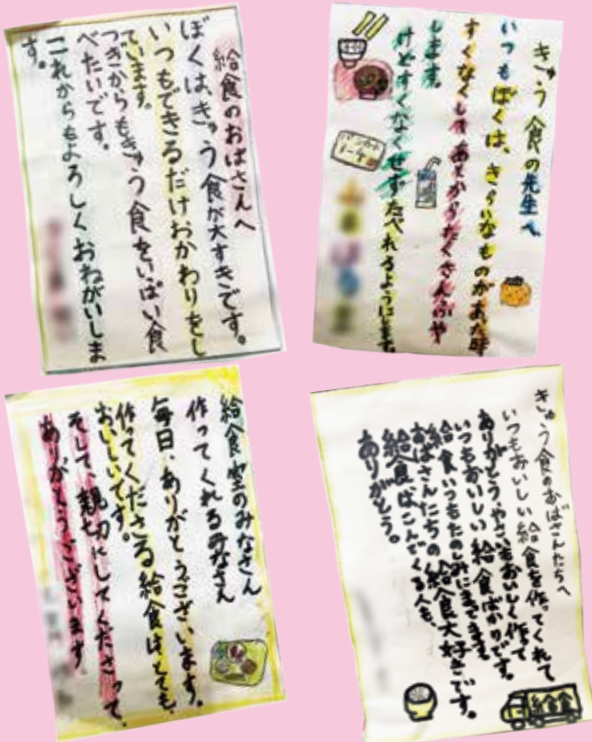 給食のおばさんへ
ぼくはきゅう食が大すきです。
いつもできるだけおかわりをし
ています。
つぎからもきゅう食をいっぱい食
べたいです。
これからもよろしくおねがいしま
す。
きゅう食の先生へ
いつもぼくは、きらいなものがあった時
すくなくしてあとからたくさんふや
します。
けどすくなくせずたべれるようにします。
給食室のみなさん
作ってくれるみなさん
毎日、ありがとうございます。
作ってくださる給食はとても、
おいしいです。
そして、親切にしてくださって、
ありがとうございます。
きゅう食のおばさんたちへ
いつもおいしい給食を作ってくれて
ありがとうやさいもおいしく作って
いつもおいしい給食ばかりです。
給食いつもたのしみにまってます
おばさんたちの給食大好きです。
給食はこんでくる人も、
ありがとう。
給食